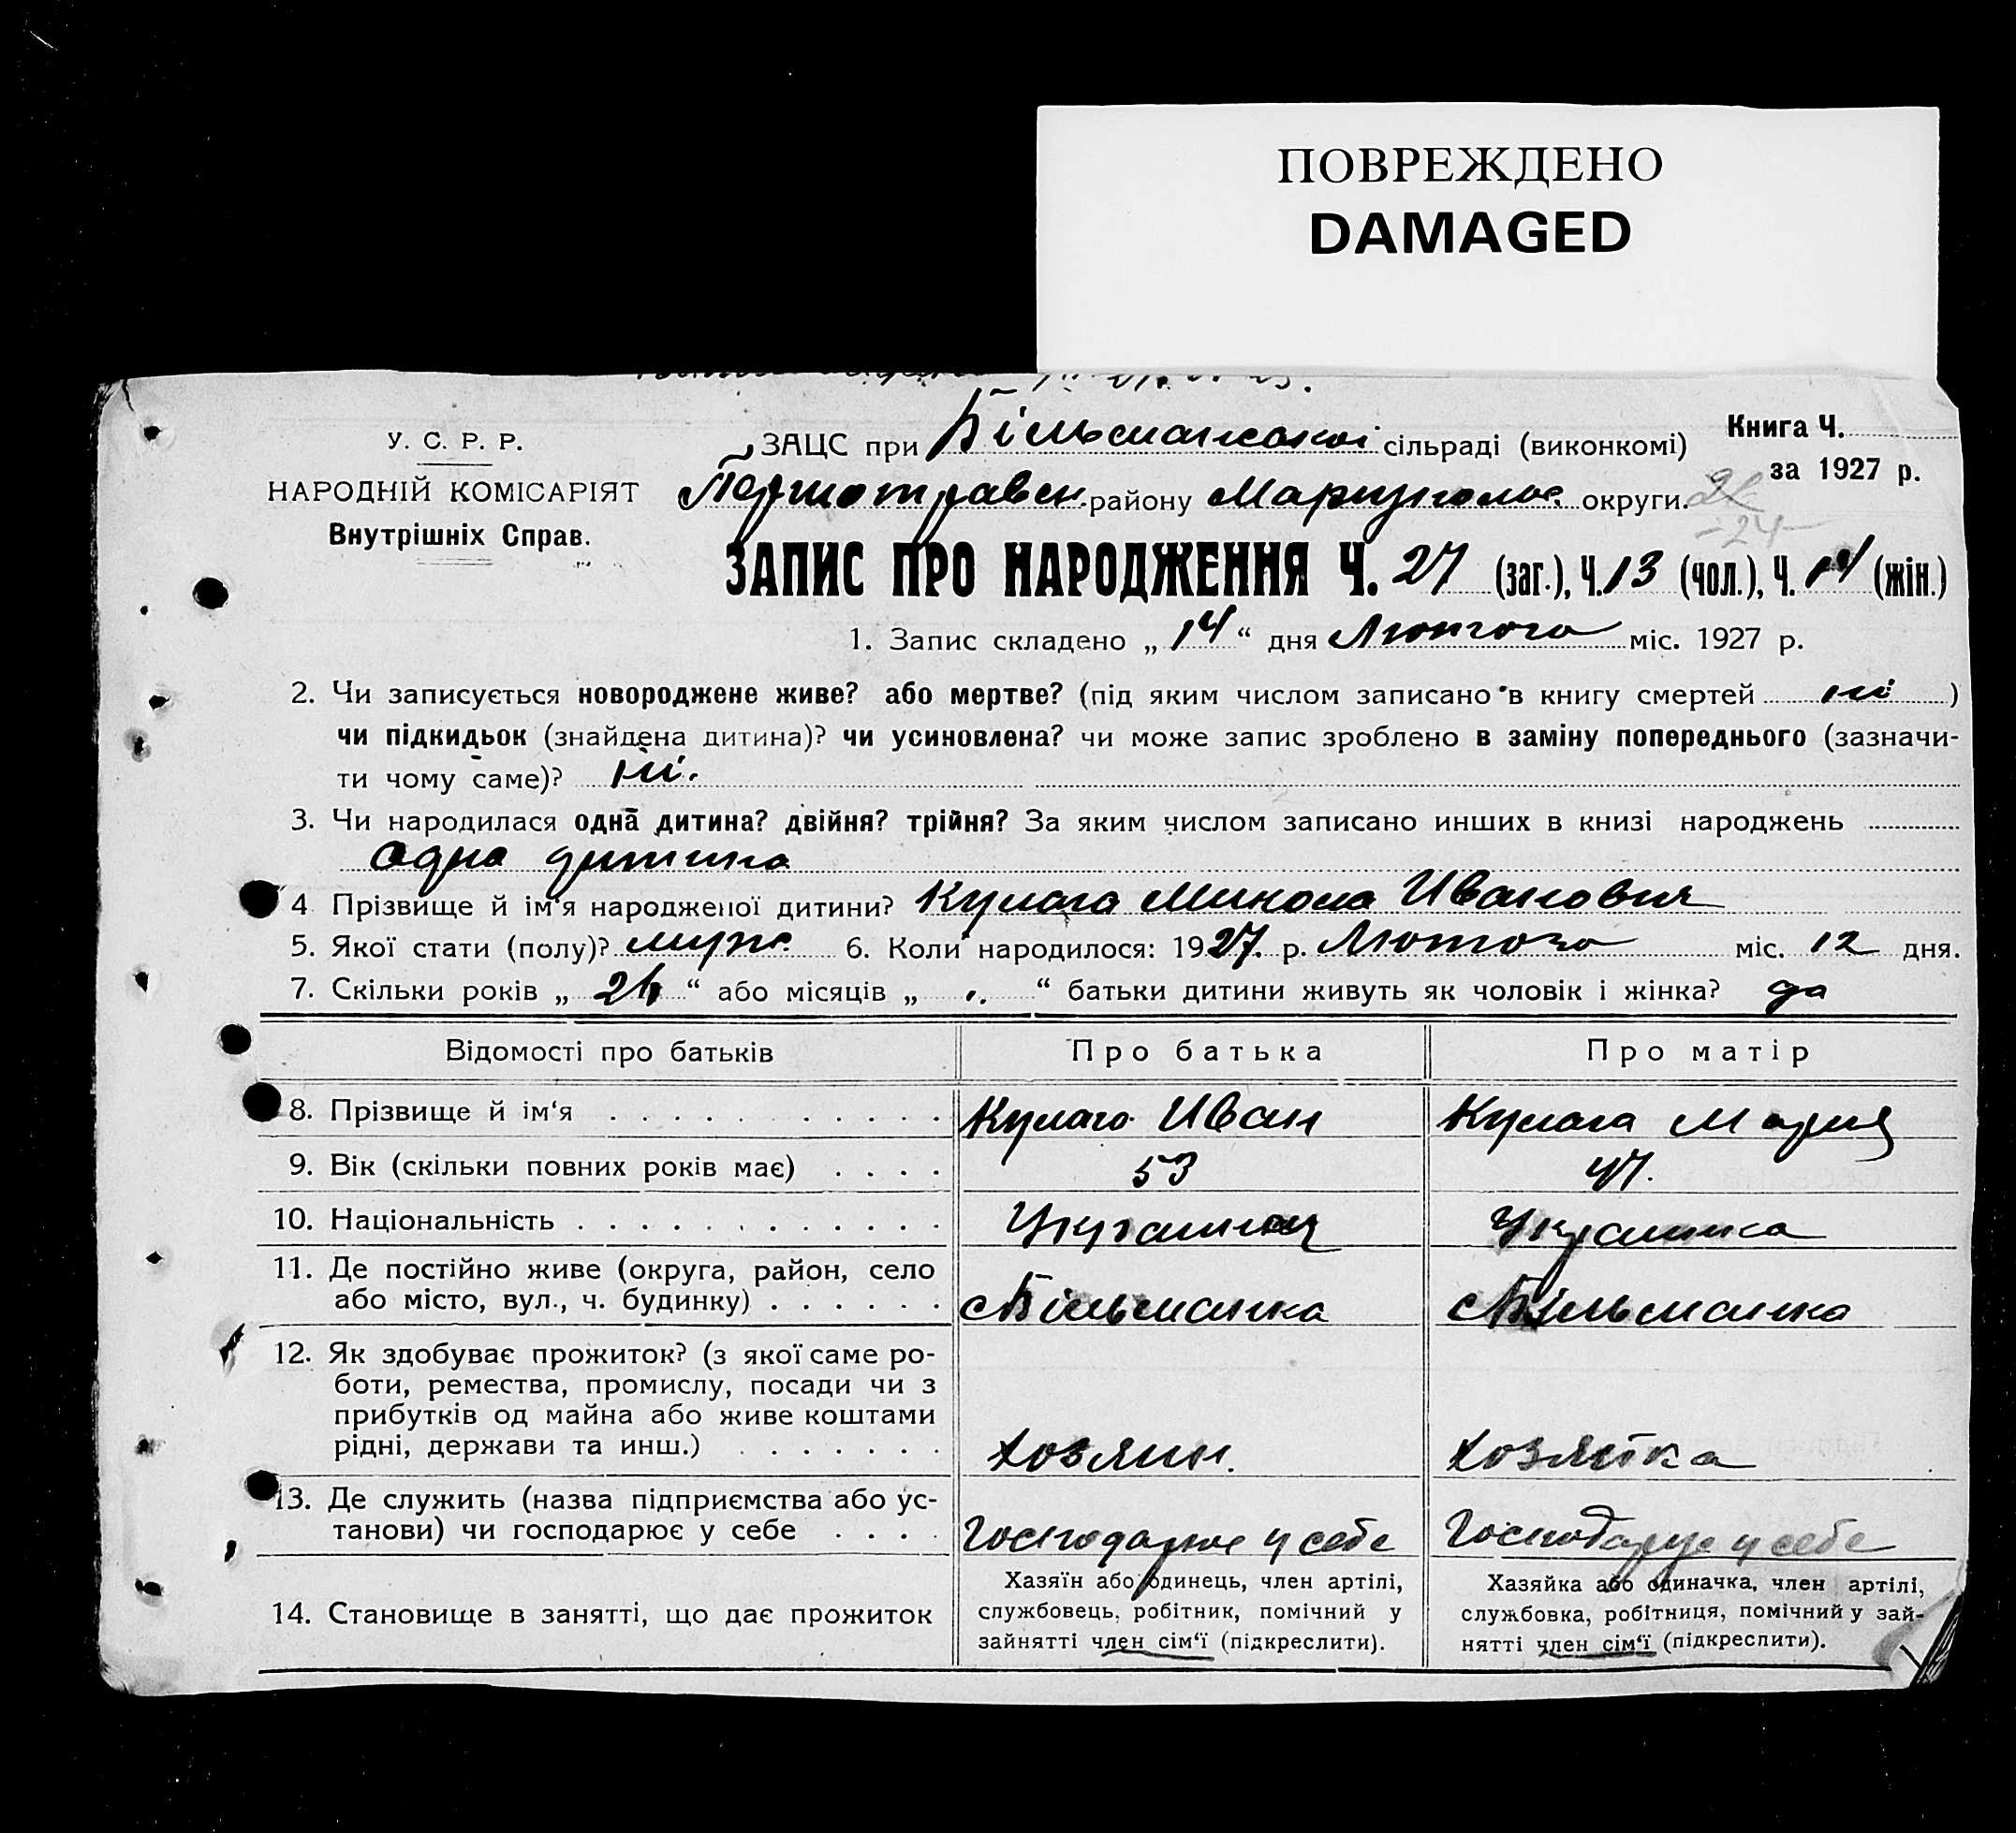 ПОВРЕЖДЕНО
DAMAGED
У. С. Р. Р.
НАРОДНІЙ КОМІСАРІЯТ
Внутрішніх Справ.
ЗАЦС при Більманської сільраді (виконкомі)
Книга Ч.
за 1927 р.
Першотравен. району Маріупольс. округи.
-24-
ЗАПИС ПРО НАРОДЖЕННЯ Ч. 27 (заг.), Ч. 13 (чол.), Ч. 14 (жін.)
1. Запис складено „ 14 “ дня Лютого міс. 1927 р.
2. Чи записується новороджене живе? або мертве? (під яким числом записано в книгу смертей ні )
чи підкидьок (знайдена дитина)? чи усиновлена? чи може запис зроблено в заміну попереднього (зазначи-
ти чому саме)? ні.
3. Чи народилася одна дитина? двійня? трійня? За яким числом записано инших в книзі народжень
одна дитина
4 Прізвище й ім'я народженої дитини? Кулага Микола Иванович
5. Якої стати (полу)? муж. 6. Коли народилося: 1927. р. Лютого міс. 12 дня.
7. Скільки років „ “ або місяців „ “ батьки дитини живуть як чоловік і жінка? да
Відомості про батьків Про батька Про матір
8. Прізвище й ім‘я Кулага Иван Кулага Мария
9. Вік (скільки повних років має) 53 47.
10. Національність Украинец Украинка
11. Де постійно живе (округа, район, село
або місто, вул., ч. будинку) с Більманка с Більманка
12. Як здобуває прожиток? (з якої саме ро-
боти, ремества, промислу, посади чи з
прибутків од майна або живе коштами
рідні, держави та инш.) хозяин. хозяйка
13. Де служить (назва підприємства або ус-
танови) чи господарює у себе Господарює у себе Господарує у себе
14. Становище в занятті, що дає прожиток
Хазяїн або одинець, член артілі,
службовець, робітник, помічний у
зайнятті член сім‘ї (підкреслити).
Хазяйка або одиначка, член артілі,
службовка, робітниця, помічний у зай-
нятті член сім‘ї (підкреслити).